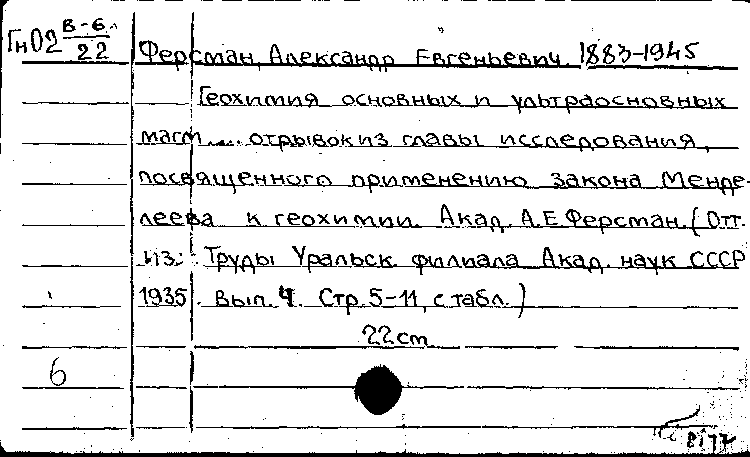 Гн02 В-6
22
Ферсман, Александр Евгеньевич. 1883-1945
Геохимия основных и ультраосновных
магм .... отрывок из главы исследования,
посвященного применению закона Менде-
леева к геохимии. Акад. А.Е.Ферсман. (Отт.
из: Труды Уральск. филиала Акад. наук СССР
1935. Вып. 4. Стр. 5-11, с табл.)
22cm
6